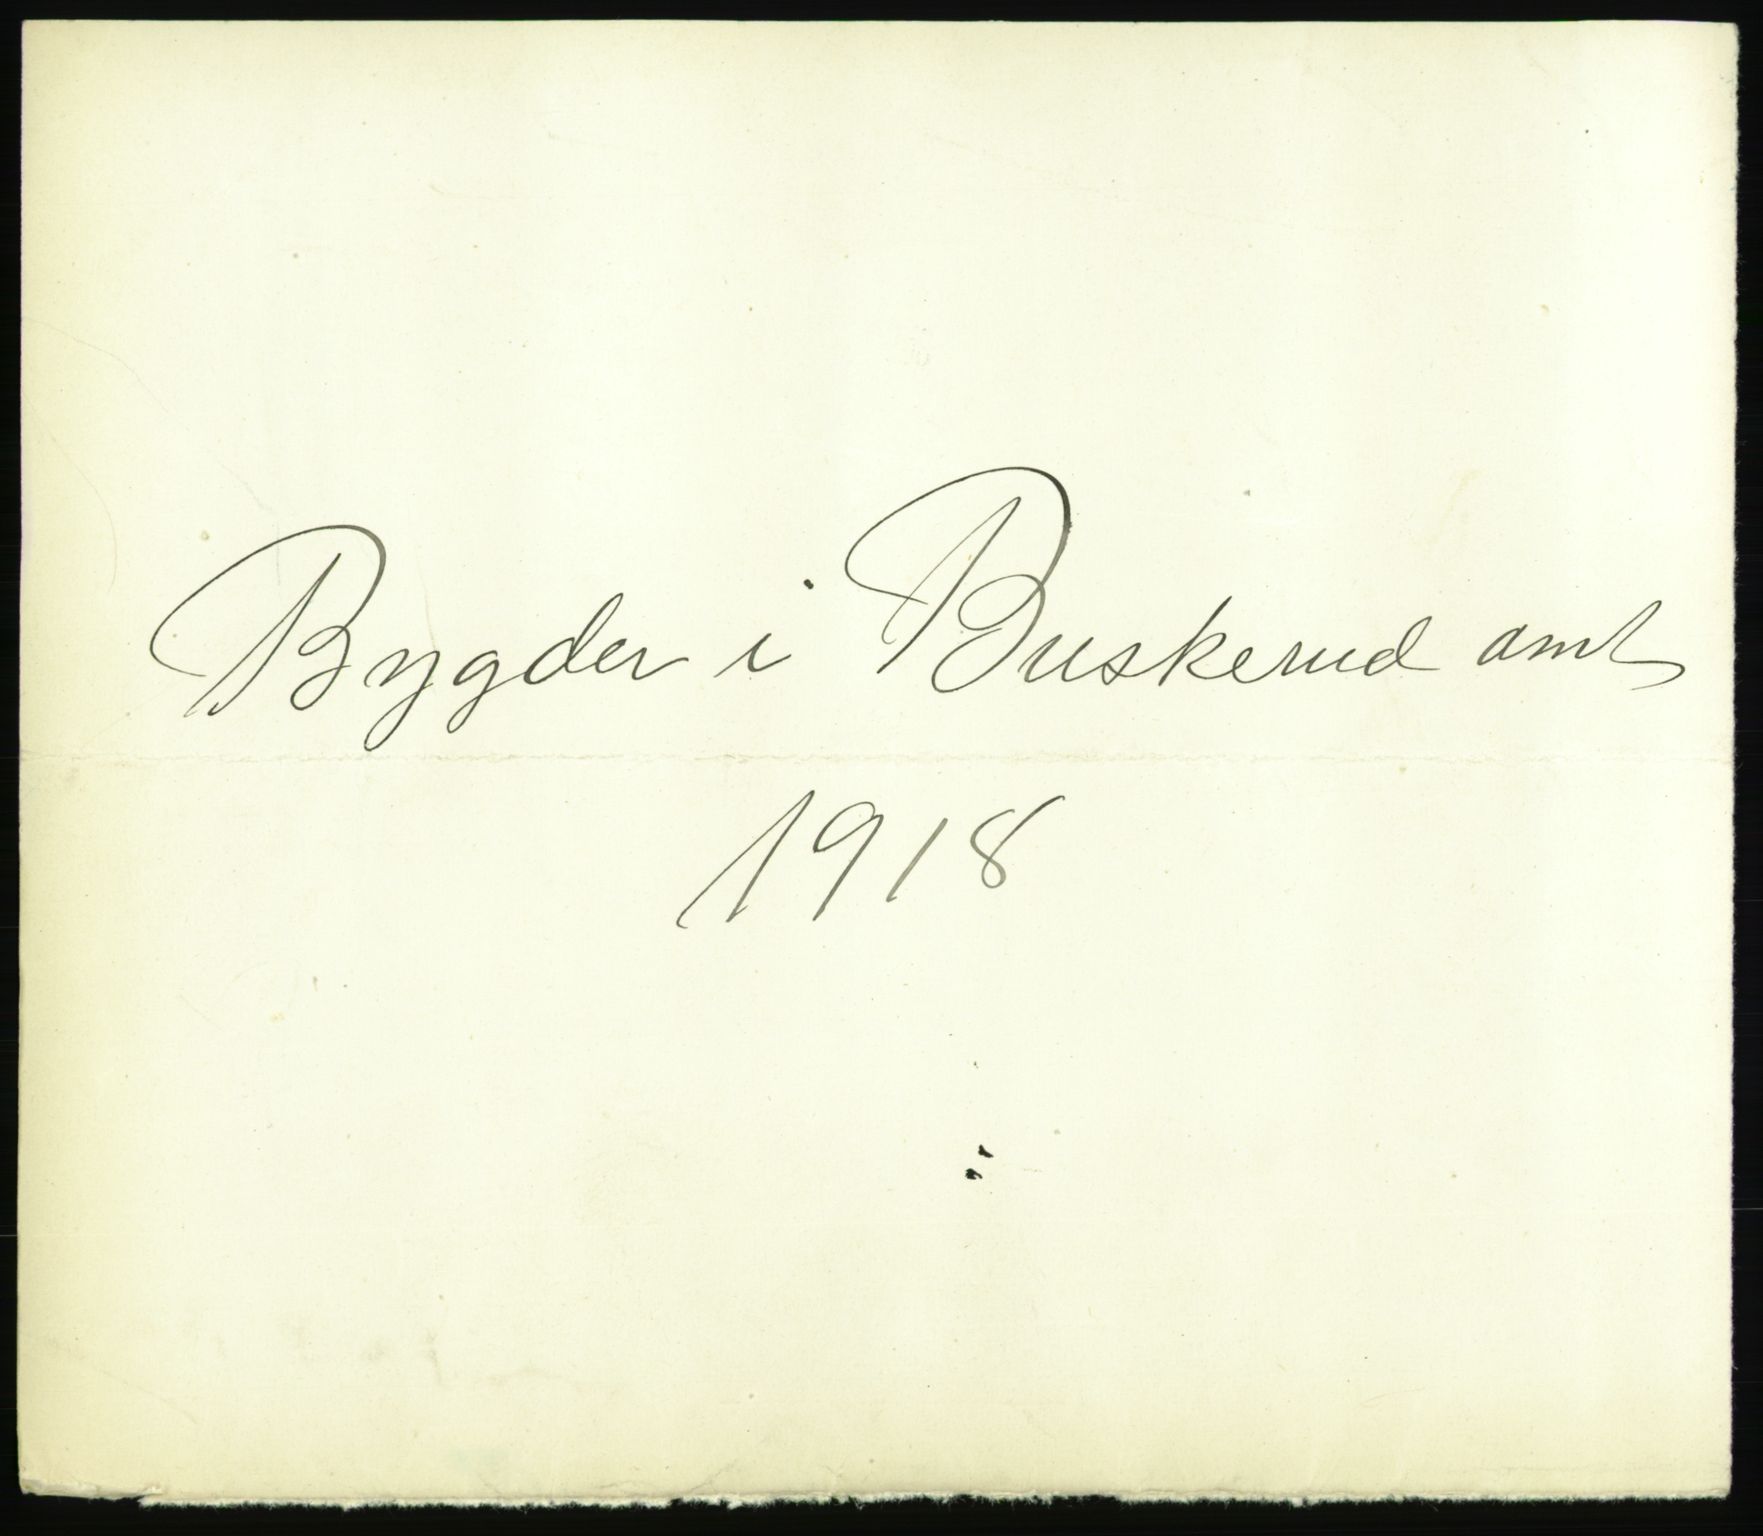 Bygder i Buskerud amt
1918